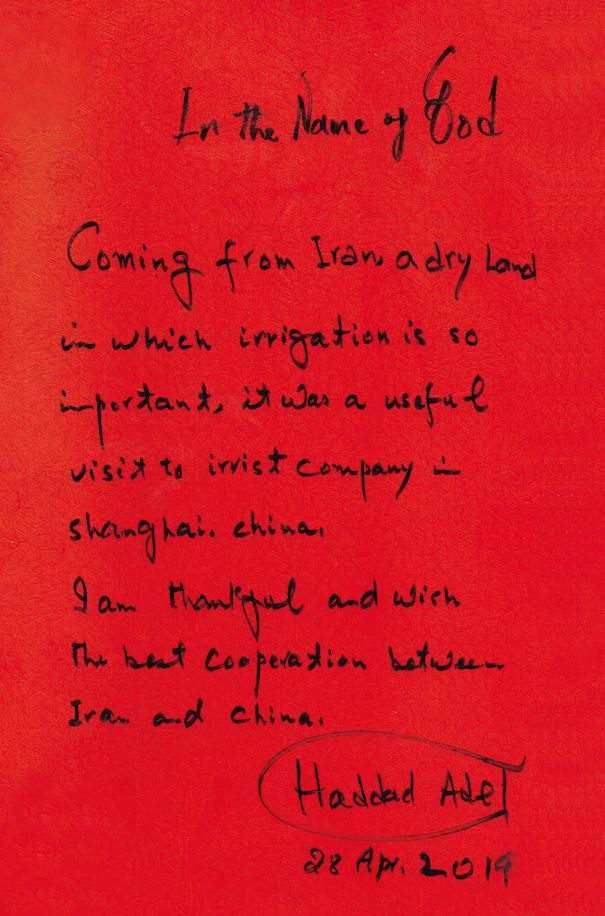 In the Name of God
Coming from Iran a dry Land
in which irrigation is so
important, it was a useful
visit to irrist company in
shanghai. china.
I am thankful and wish
the best cooperation between
Iran and china.
Haddad Adel
28 Apr. 2019